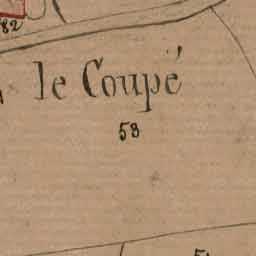 82
le Coupé
58